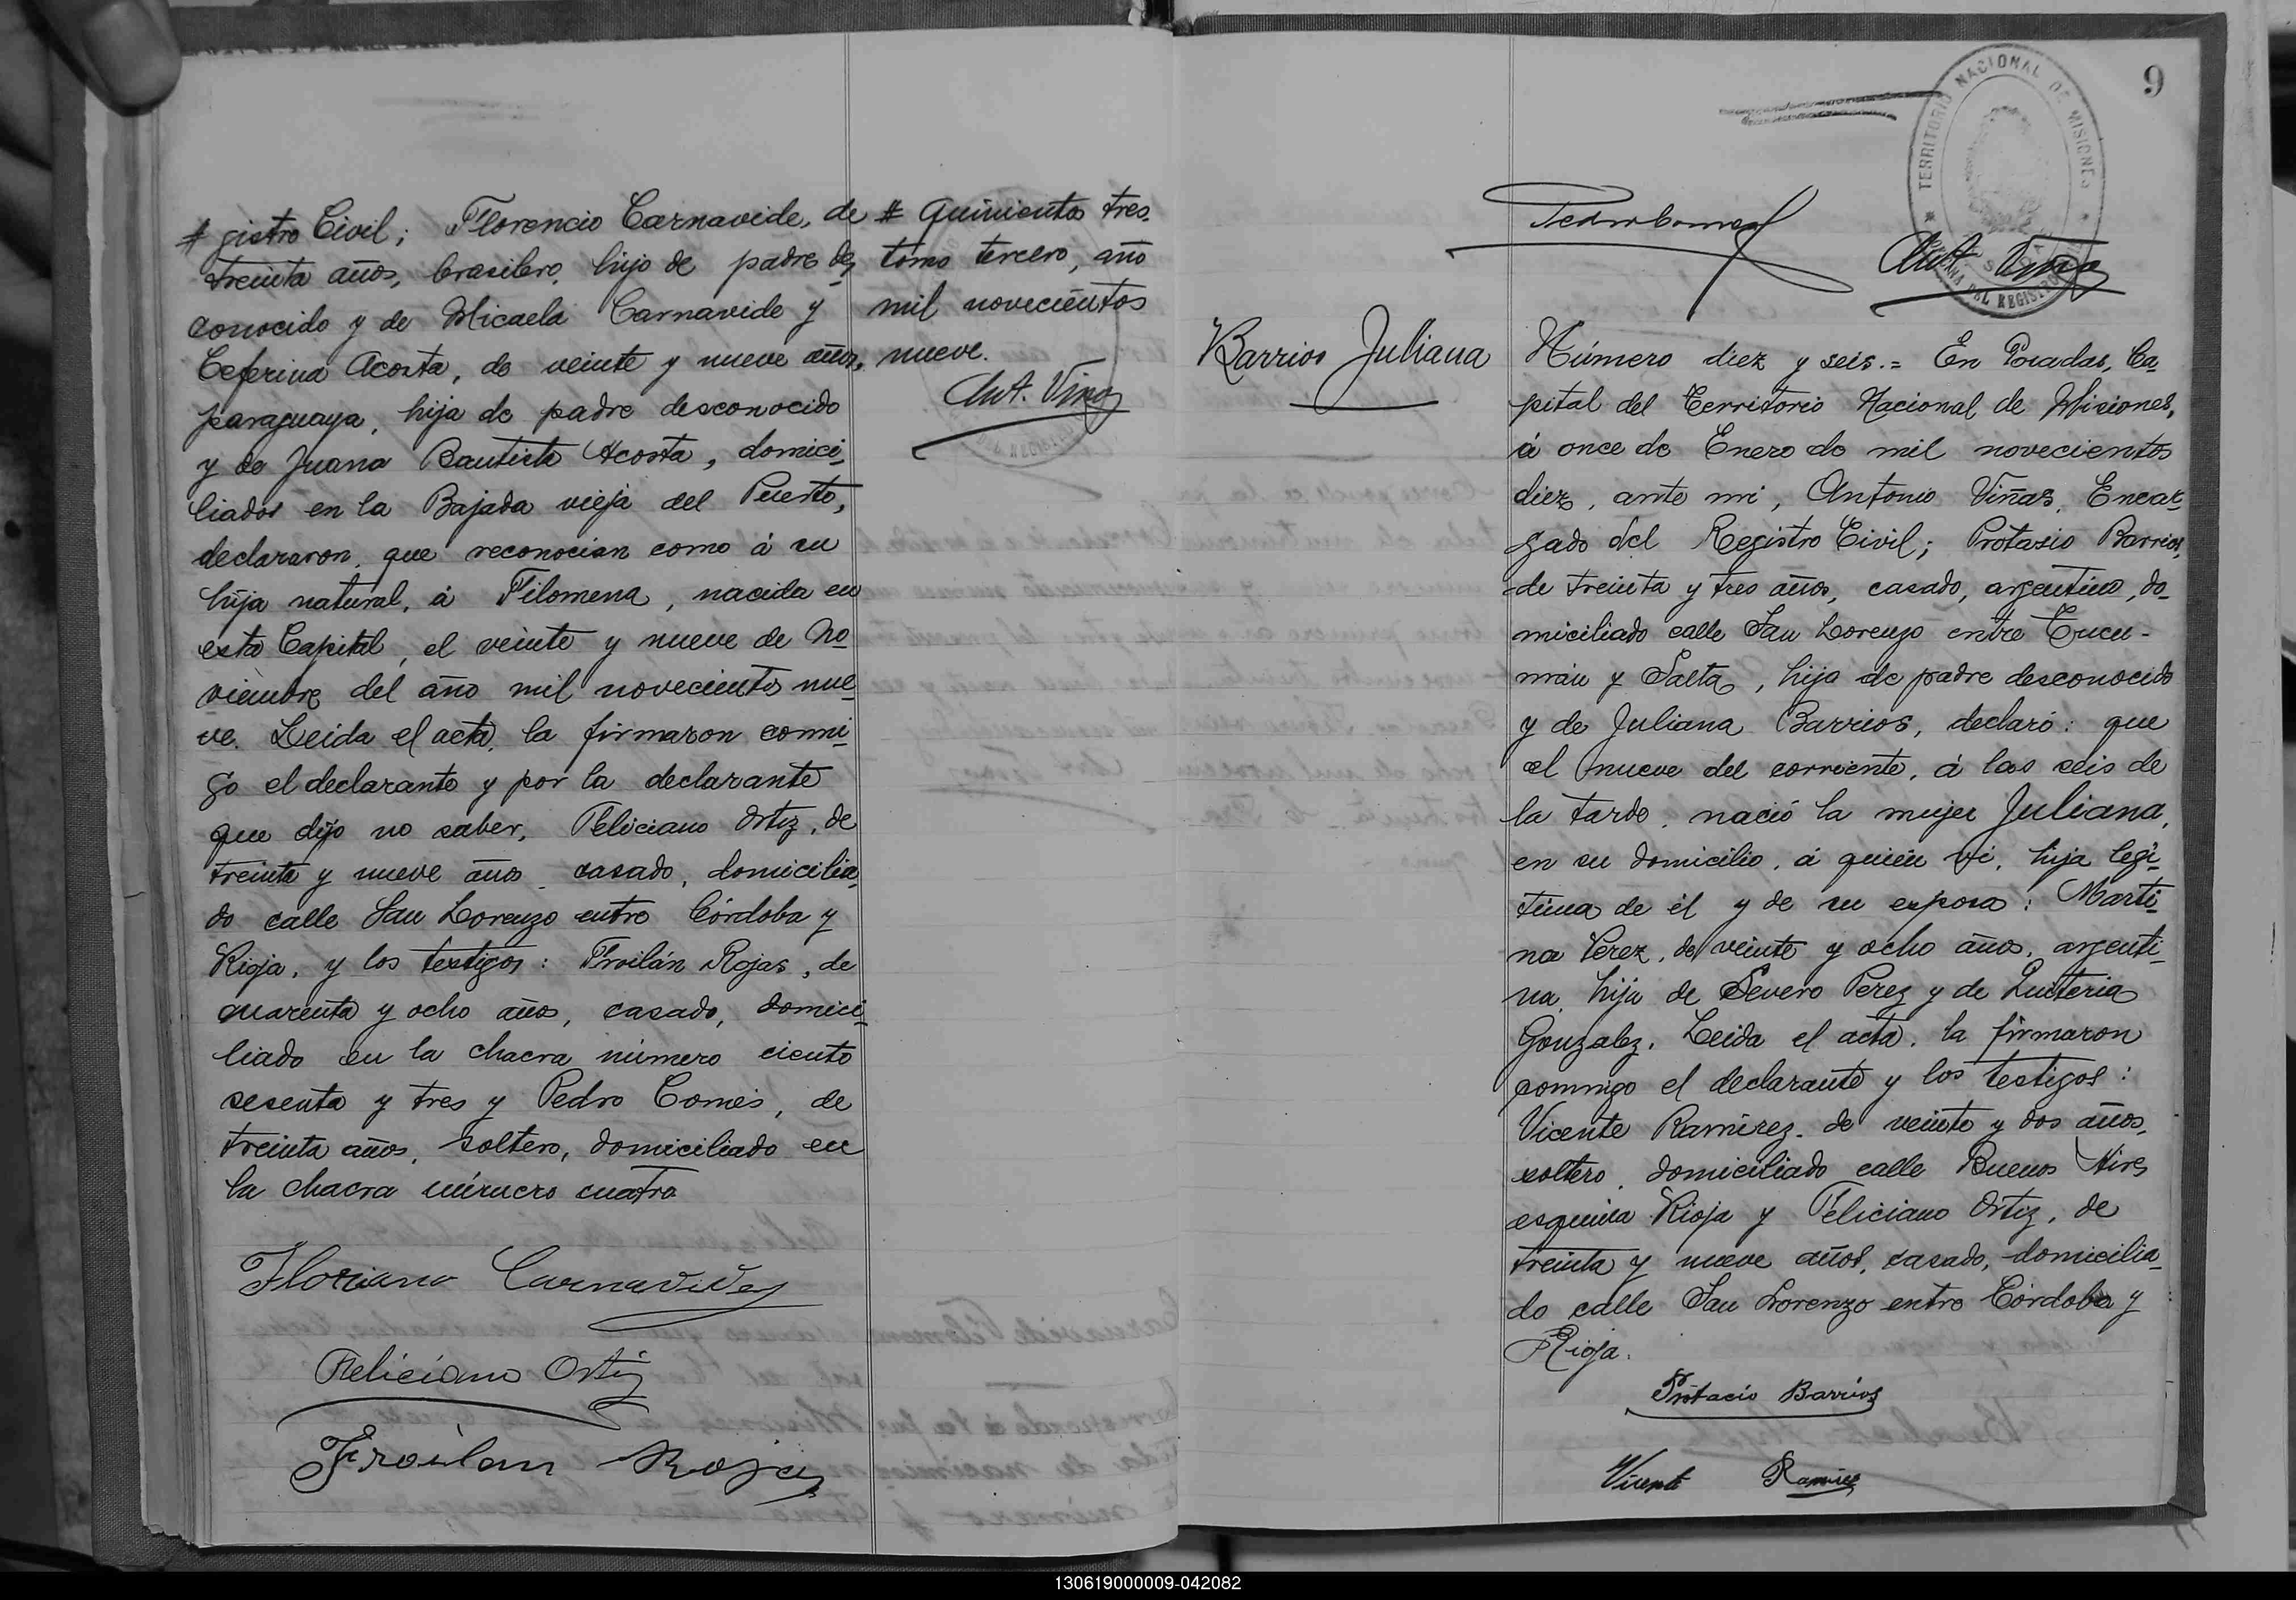 # gistro Civil; Florencio Carnavide, de
treinta años, brasilero, hijo de padre des
conocido y de Micaela Carnavide y
Ceferina Acosta, de veinte y nueve años,
paraguaya, hija de padre desconocido
y de Juana Bautista Acosta, domici-
liados en la Bajada vieja del Puerto,
declararon, que reconocian como á su
hija natural, á Filomena, nacida en
esta Capital, el veinte y nueve de No-
viembre del año mil novecientos nue-
ve. Leida el acta, la firmaron conmi-
go el declarante y por la declarante
que dijo no saber, Feliciano Ortiz, de
treinta y nueve años, casado, domicilia-
do calle San Lorenzo entre Córdoba y
Rioja, y los testigos: Froilán Rojas, de
cuarenta y ocho años, casado, domici-
liado en la chacra número ciento
sesenta y tres y Pedro Comes, de
treinta años, soltero, domiciliado en
la chacra número cuatro
Floriano Carnavides
Feliciano Ortiz
Froilan Rojas
# quinientos tres.
tomo tercero, año
mil novecientos
nueve.
Ant. Viñas
9
TERRITORIO NACIONAL DE MISIONES
DEL REGISTRO
Ant. Viñas
Barrios Juliana
Número diez y seis.= En Posadas, Ca-
pital del Territorio Nacional de Misiones,
á once de Enero de mil novecientos
diez, ante mi, Antonio Viñas, Encar-
gado del Registro Civil; Protasio Barrios,
de treinta y tres años, casado, argentino, do-
miciliado calle San Lorenzo entre Tucu-
mán y Salta, hijo de padre desconocido
y de Juliana Barrios, declaró: que
el nueve del corriente, á las seis de
la tarde, nació la mujer Juliana,
en su domicilio, á quién vi, hija legí-
tima de él y de su esposa: Marti-
na Perez, de veinte y ocho años, argenti-
na, hija de Severo Perez y de Quiteria
Gonzalez. Leida el acta, la firmaron
conmigo el declarante y los testigos:
Vicente Ramírez, de veinte y dos años,
soltero, domiciliado calle Buenos Aires
esquina Rioja y Feliciano Ortiz, de
treinta y nueve años, casado, domicilia-
do calle San Lorenzo entre Córdoba y
Rioja.
Protacio Barrios
Vicente Ramirez
130619000009-042082